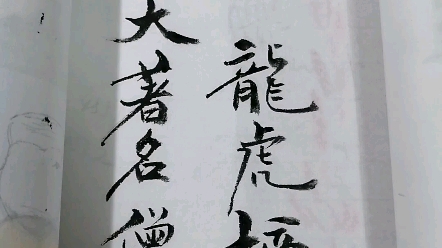 龍虎
大著名僧